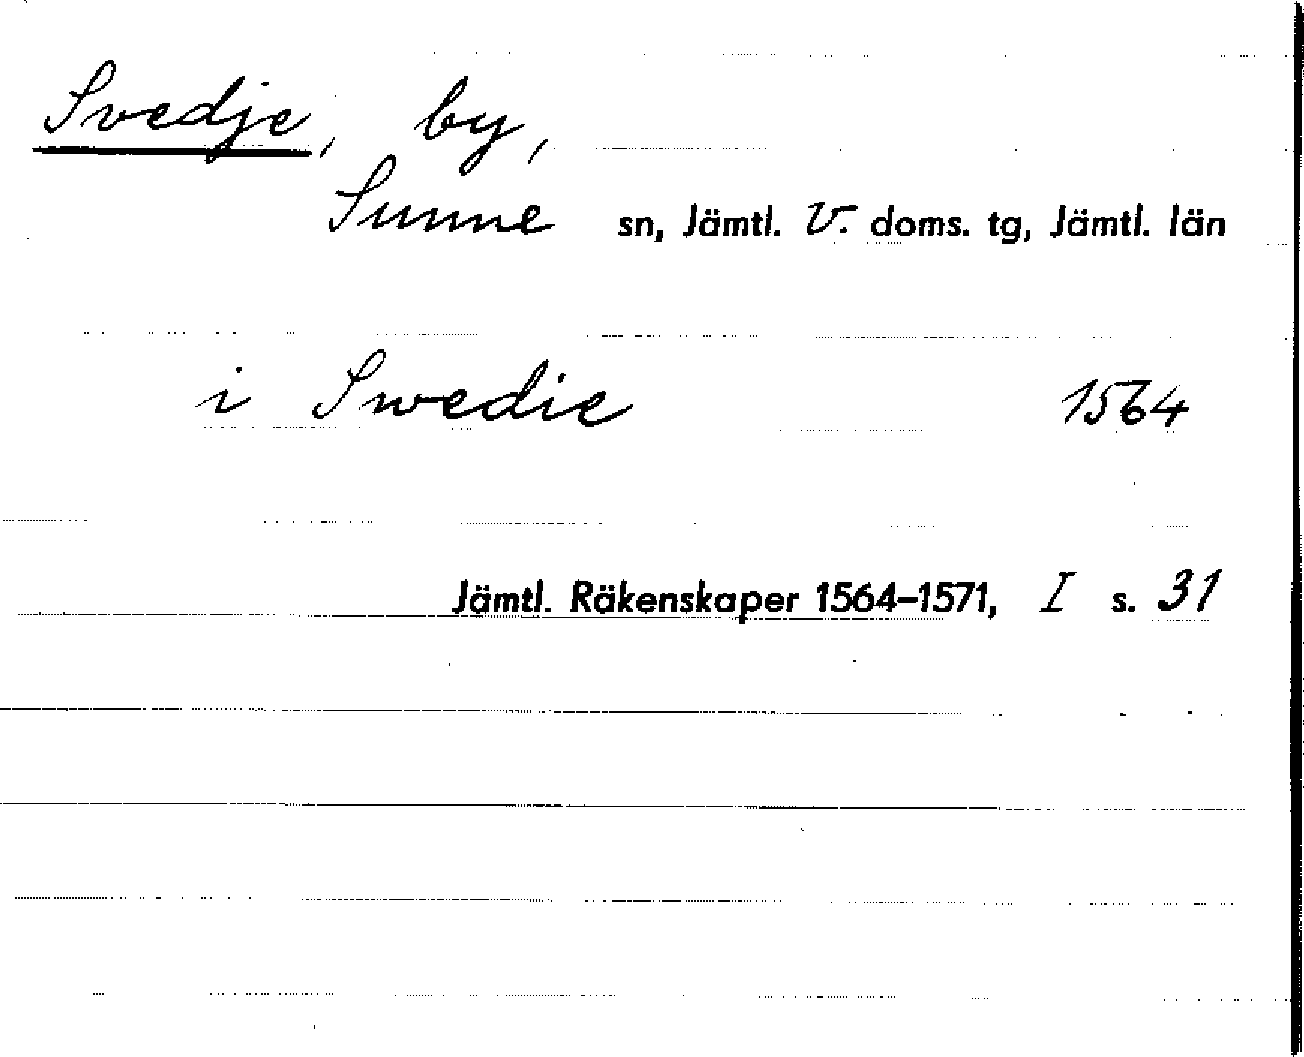 Svedje, by,
Sunne sn, Jämtl. V. doms. tg, Jämtl. län
i Swedie 1564
Jämtl. Räkenskaper 1564–1571, I s. 31